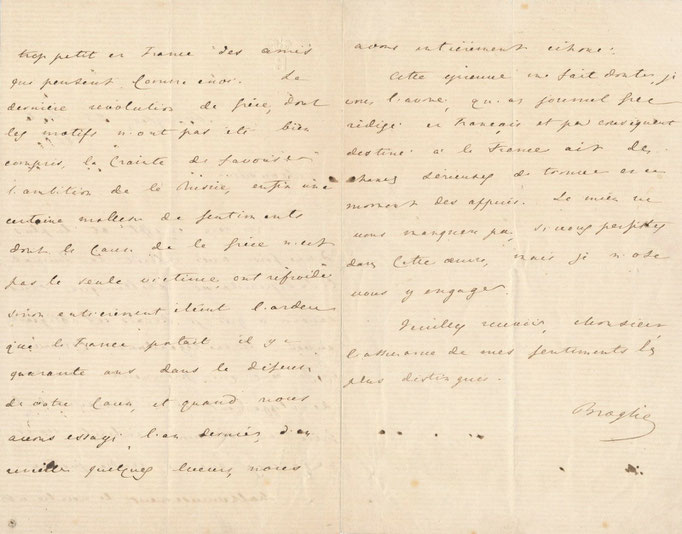 trop petit en France des amis
qui pensent comme moi. La
dernière révolution de Grèce, dont
les motifs n'ont pas été bien
compris, la crainte de favoriser
l'ambition de la Russie, enfin une
certaine mollesse de sentiments
dont la cause de la Grèce n'est
pas la seule victime, ont refroidi
sinon entièrement éteint l'ardeur
que la France portait il y a
quarante ans, dans la défense
de votre cause, et quand nous
avons essayé, l'an dernier, d'en
quelques lueurs, nous
avons entièrement échoué.
Cette épreuve me fait douter, je
vous l'avoue, qu'un journal grec
rédigé en français et par conséquent
destiné à la France ait des
chances sérieuses de trouver en ce
moment des appuis. Le mien ne
vous manquera pas, si vous persistez
dans cette œuvre, mais je n'ose
vous y engager.
Veuillez recevoir, Monsieur
l'assurance de mes sentiments les
plus distingués.
Broglie